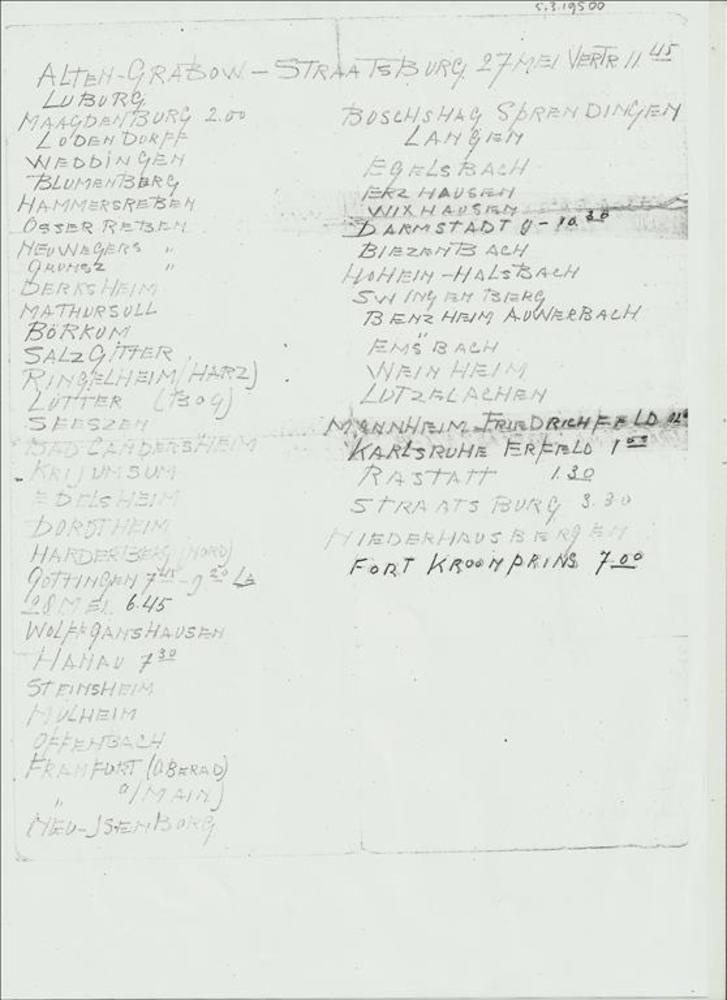 5.3.19500
ALTEN-GRABOW – STRAATSBURG 27 MEI VERTR 11 45
LUBURG
MAAGDENBURG 2.00
LODENDORFF
WEDDINGEN
BLUMENBERG
HAMMERSREBEN
OSSER REBEN
NEUWEGERS "
GRUNSZ "
DERKSHEIM
MATHURSULL
BÖRKUM
SALZGITTER
RINGELHEIM (HARZ)
LUTTER (BOG)
SEESZEN
BAD CANDERSHEIM
KRIJUMSUM
EDELSHEIM
DOROTHEIM
HARDERBERG (NORD)
GOTTINGEN 7 45 – 9 20
28 MEI 6.45
WOLFFGANSHAUSEN
HANAU 7 30
STEINSHEIM
MULHEIM
OFFENBACH
FRANFURT (OBERAD)
" A/MAIN)
NEU-ISENBORG
BUSCHSHAG SPRENDINGEN
LANGEN
EGELSBACH
ERZHAUSEN
WIXHAUSEN
DARMSTADT 9 – 10.30
BIEZENBACH
HOHEIN-HALSBACH
SWINGENBERG
BENZHEIM AUWERBACH
EMSBACH
WEINHEIM
LUTZELACHEN
MANNHEIM-FRIEDRICHFELD
KARLSRUHE ERFELD 1 00
RASTATT 1.30
STRAATSBURG 3.30
NIEDERHAUSBERGEN
FORT KROONPRINS 7.00